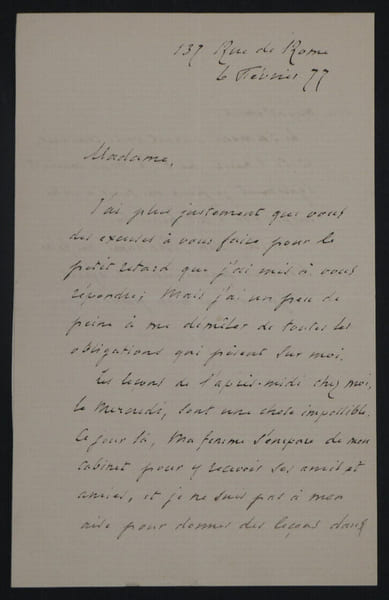 137 Rue de Rome
6 Février 77
Madame,
J'ai plus justement que vous
des excuses à vous faire pour le
petit retard que j'ai mis à vous
répondre; Mais j'ai un peu de
peine à me démêler de toutes les
obligations qui pèsent sur moi.
Les leçons de l'après-midi chez moi,
le Mercredi, sont une chose impossible.
Ce jour là, Ma femme s'empare de mon
cabinet pour y recevoir ses amis et
amies, et je ne suis pas à mon
aise pour donner des leçons dans